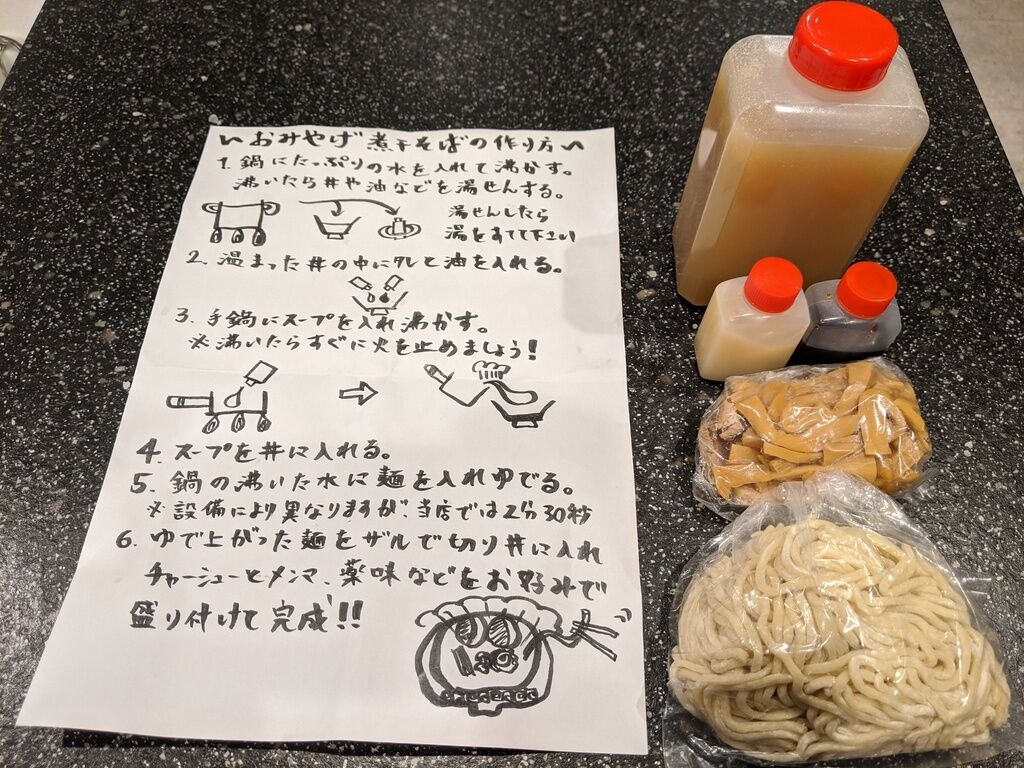 〜おみやげ煮干そばの作り方〜
1. 鍋にたっぷりの水を入れて沸かす。
沸いたら丼や油などを湯せんする。
湯せんしたら
湯をすてて下さい
2. 温まった丼の中にタレと油を入れる。
3. 手鍋にスープを入れ沸かす。
※沸いたらすぐに火を止めましょう!
4. スープを丼に入れる。
5. 鍋の沸いた水に麺を入れゆでる。
※設備により異なりますが、当店では2分30秒
6. ゆで上がった麺をザルで切り丼に入れ
チャーシューとメンマ、薬味などをお好みで
盛り付けて完成!!